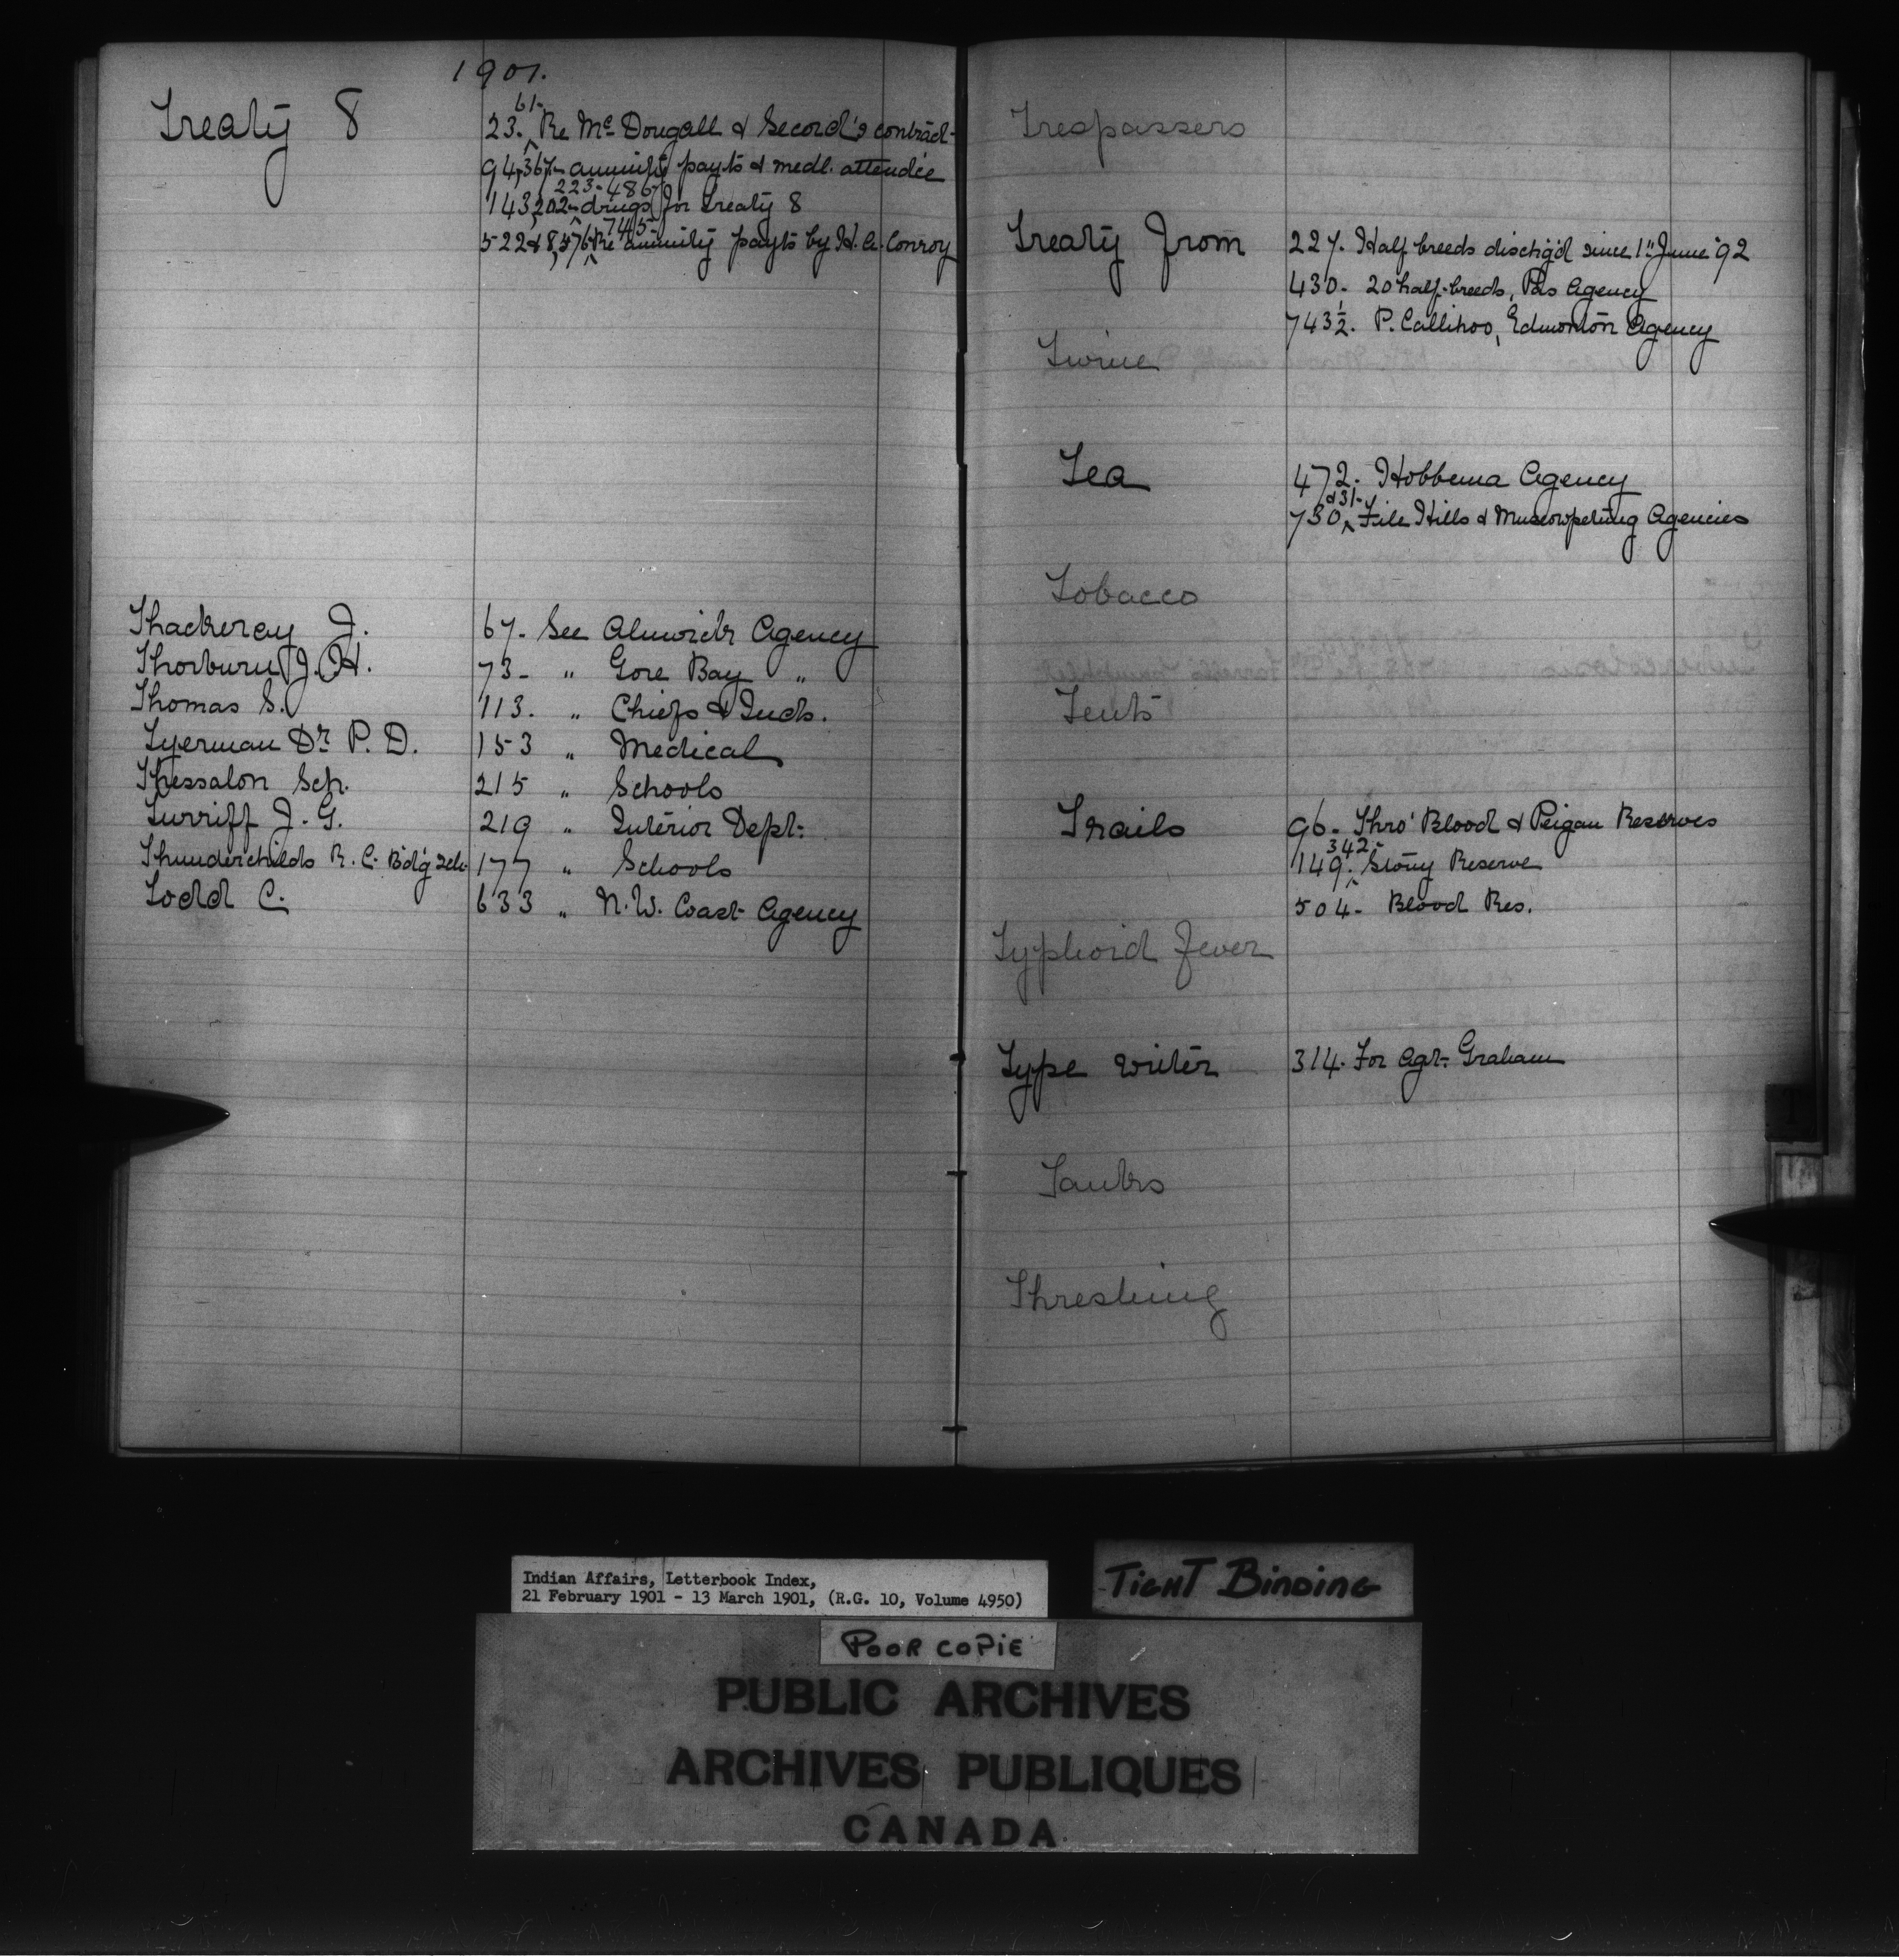 1901.
Treaty 8
61-
23. Re Mc Dougall & Secord's contract-
94,367- annuity payts & medl. attendce
223-486-
143,202- drugs for Treaty 8
745-
522 & 8,576 Re annuity payts by H. A. Conroy
Thackeray J. 67- See Alnwick Agency
Thorburn J. H. 73- " Gore Bay "
Thomas S. 113. " Chiefs & Inds.
Tyerman Dr. P. D. 153 " Medical
Thessalon Sch. 215 " Schools
Turriff J. G. 219 " Interior Dept.
Thunderchilds R. C. Bd'g Sch. 177 " Schools
Todd C. 633 " N. W. Coast Agency
Trespassers
Treaty from 227. Half breeds dischg'd since 1st June '92
430- 20 half-breeds, Pas Agency
743½. P. Callihoo, Edmonton Agency
Twine
Tea 472. Hobbema Agency
& 31-
730 File Hills & Muscowpetung Agencies
Tobacco
Tents
Trails 96- Thro' Blood & Peigan Reserves
342-
149. Stony Reserve
504- Blood Res.
Typhoid Fever
Type writer 314. For Agt. Graham
Tanks
Threshing
T
Indian Affairs, Letterbook Index,
21 February 1901 - 13 March 1901, (R.G. 10, Volume 4950)
TIGHT BINDING
POOR COPIE
PUBLIC ARCHIVES
ARCHIVES PUBLIQUES
CANADA